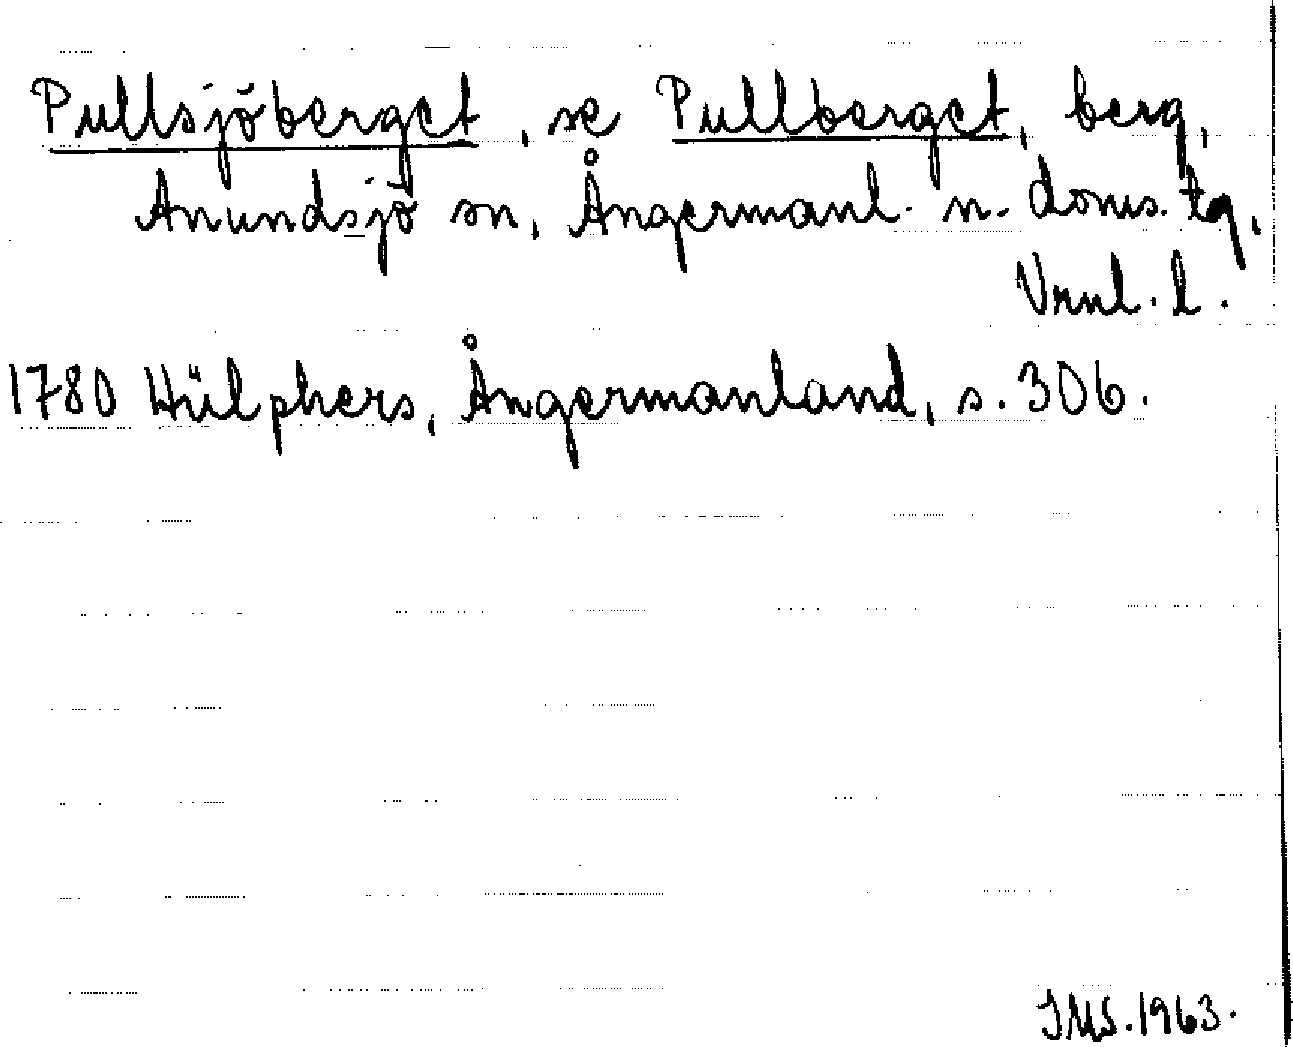 Pullsjöberget, se Pullberget, berg,
Anundsjö sn, Ångermanl. n. doms. tg,
Vrnl. l.
1780 Hülphers, Ångermanland, s. 306.
IMS. 1963.